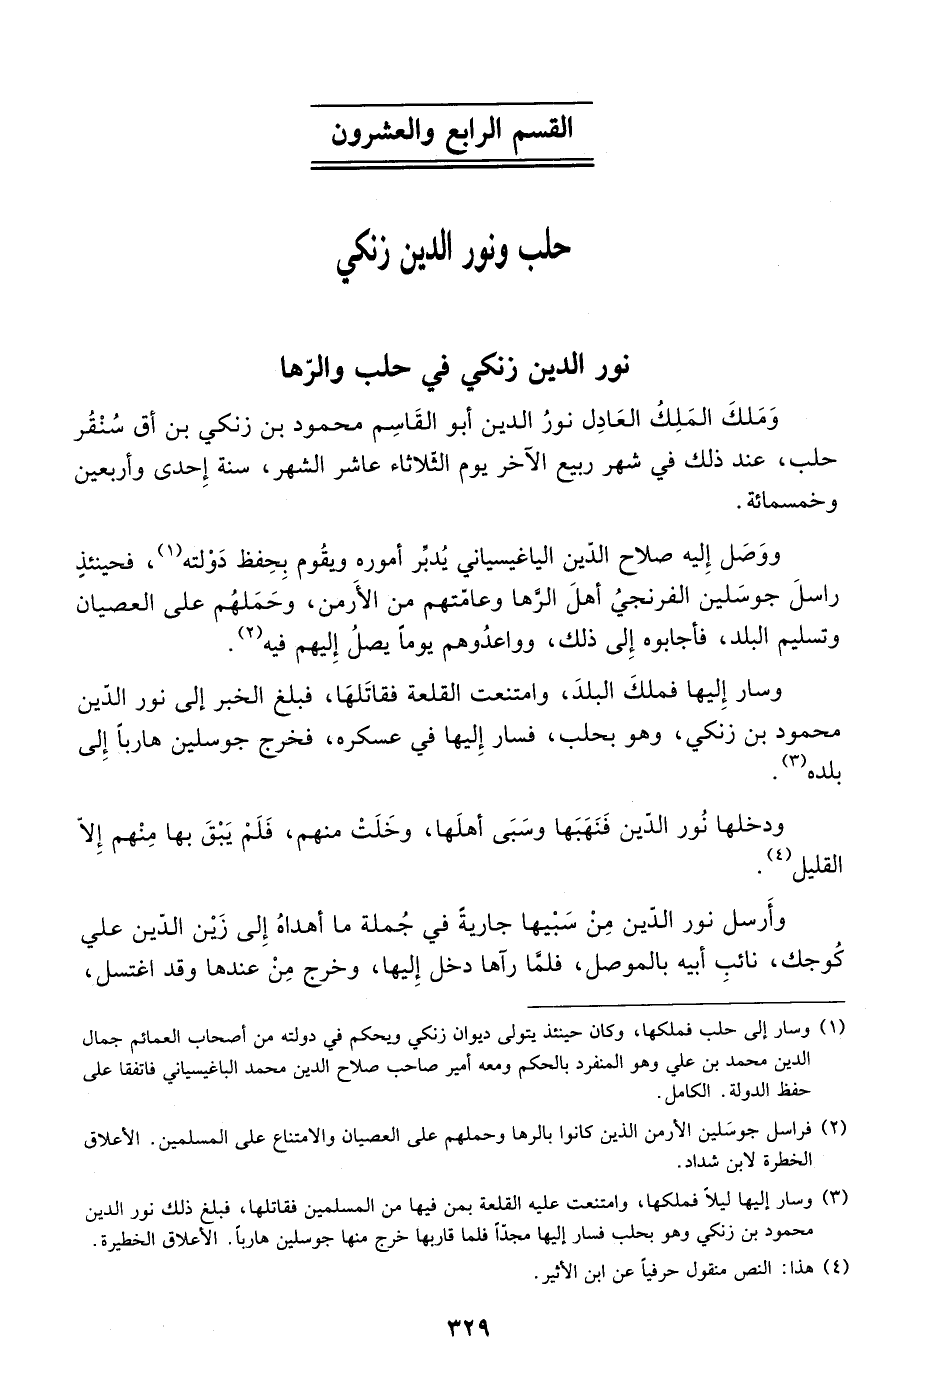 القسم الرابع والعشرون
حلب ونور الدين زنكي
نور الدين زنكي في حلب والرّها
وَمَلكَ المَلِكُ العَادِل نورُ الدين أبو القَاسِم محمود بن زنكي بن أق سُنْقُر
حلب، عند ذلك في شهر ربيع الآخر يوم الثّلاثاء عاشر الشهر، سنة إِحدى وأربعين
وخمسمائة.
ووَصَل إِليه صلاح الدّين الياغيسياني يُدبِّر أموره ويقُوم بِحِفظ دَوْلته(١)، فحينئذٍ
راسلَ جوسَلين الفرنجيُ أهلَ الرَّها وعامّتهم من الأَرمن، وحَمَلهُم على العصيان
وتسليم البلد، فأجابوه إِلى ذلك، وواعدُوهم يوماً يصلُ إِليهم فيه(٢).
وسار إِليها فملكَ البلدَ، وامتنعت القلعة فقاتَلهَا، فبلغ الخبر إلى نور الدّين
محمود بن زنكي، وهو بحلب، فسار إِليها في عسكره، فخرج جوسلين هارباً إِلى
بلده(٣).
ودخلها نُور الدّين فَنَهَبَها وسَبَى أهلَها، وخَلَتْ منهم، فَلَمْ يَبْقَ بها مِنْهم إِلاّ
القليل(٤).
وأَرسل نور الدّين مِنْ سَبْيِها جاريةً في جُملة ما أهداهُ إِلى زَيْن الدّين علي
كُوجك، نائبِ أبيه بالموصل، فلمَّا رآها دخل إليها، وخرج مِنْ عندها وقد اغتسل،
(١) وسار إلى حلب فملكها، وكان حينئذ يتولى ديوان زنكي ويحكم في دولته من أصحاب العمائم جمال
الدين محمد بن علي وهو المنفرد بالحكم ومعه أمير صاحب صلاح الدين محمد الباغيسياني فاتفقا على
حفظ الدولة. الكامل.
(٢) فراسل جوسَلين الأرمن الذين كانوا بالرها وحملهم على العصيان والامتناع على المسلمين. الأعلاق
الخطرة لابن شداد.
(٣) وسار إليها ليلاً فملكها، وامتنعت عليه القلعة بمن فيها من المسلمين فقاتلها، فبلغ ذلك نور الدين
محمود بن زنكي وهو بحلب فسار إليها مجدّاً فلما قاربها خرج منها جوسلين هارباً. الأعلاق الخطيرة.
(٤) هذا: النص منقول حرفياً عن ابن الأثير.
٣٢٩